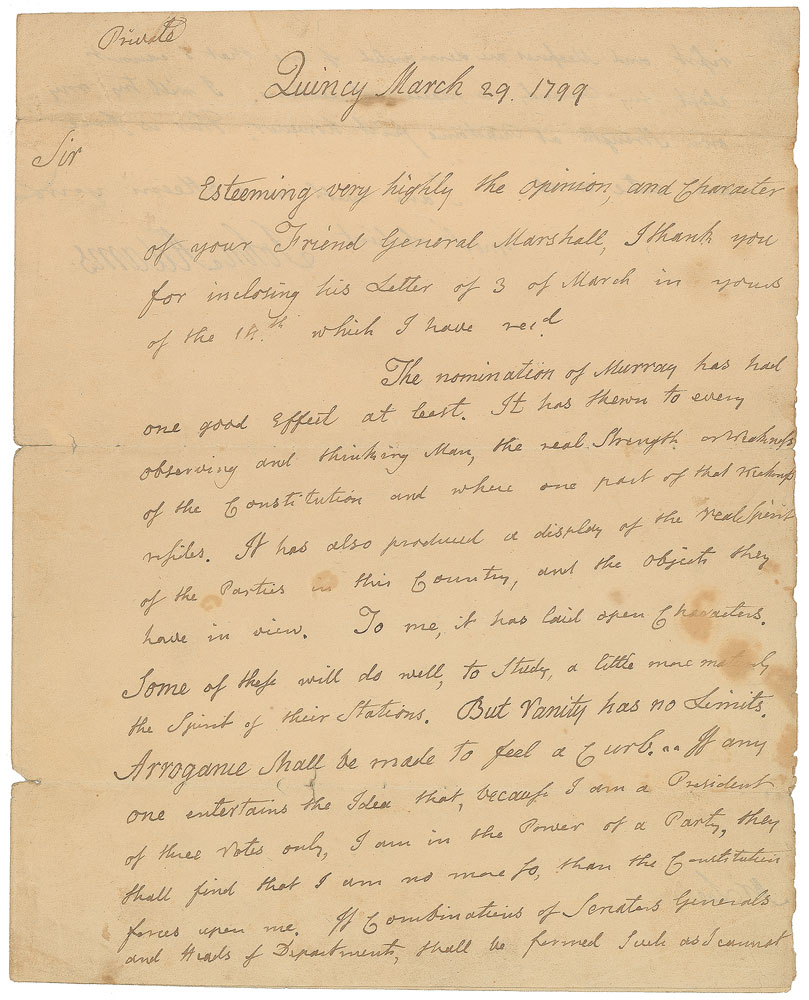 Private
Quincy March 29. 1799
Sir
Esteeming very highly the opinion, and Character
of your Friend General Marshall, I thank you
for inclosing his Letter of 3 of March in yours
of the which I have recd.
The nomination of Murray has had
one good Effect at least. It has shewn to every
observing and thinking Man, the real Strength or Weakness
of the Constitution and where one part of that Weakness
resides. It has also produced a display of the real Spirit
of the Parties in this Country, and the objects they
have in view. To me, it has laid open Characters.
Some of these will do well, to Study, a little more maturely
the Spirit of their Stations. But Vanity has no Limits.
Arrogance shall be made to feel a Curb. .. If any
one entertains the Idea that, because I am a President
of three Votes only, I am in the Power of a Party, they
shall find that I am no more so, than the Constitution
forces upon me. If Combinations of Senators Generals
and Heads of Departments, shall be formed Such as I cannot